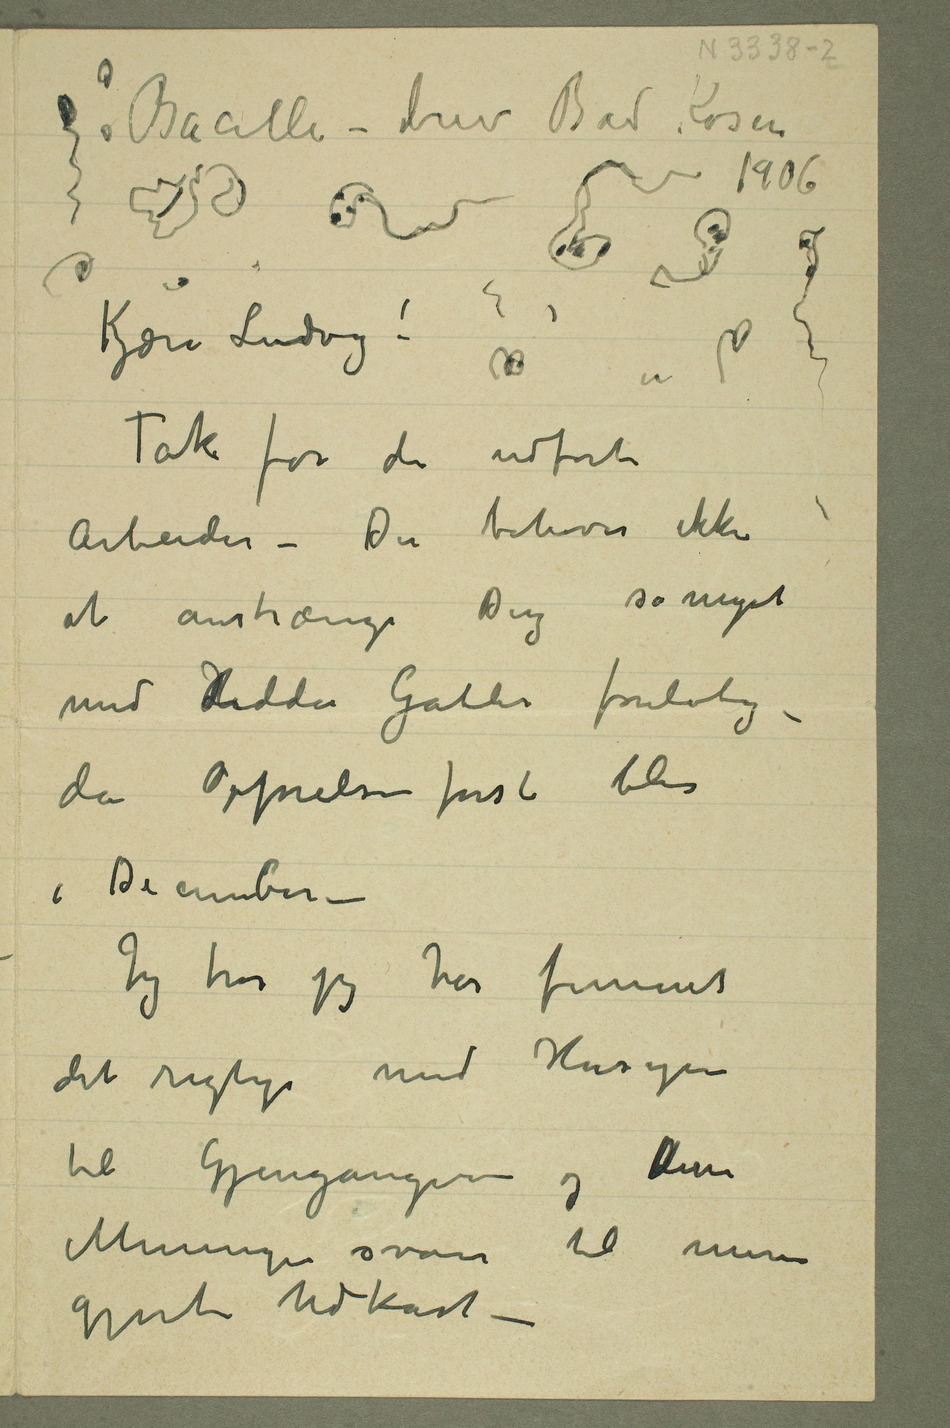 N 3338-2
Bacille – brev Bad Kösen
1906
Kjære Ludvig!
Tak for de udførte
Arbeider – Du behøver ikke
at anstrænge Dig so meget
med Hedda Gabler foreløbig –
da Opførelsen først blir
i December –
Jeg tror jeg har funnet
det rigtige med Hensyn
til Gjengangere og dine
Meninger svarer til mine
gjorte Udkast –